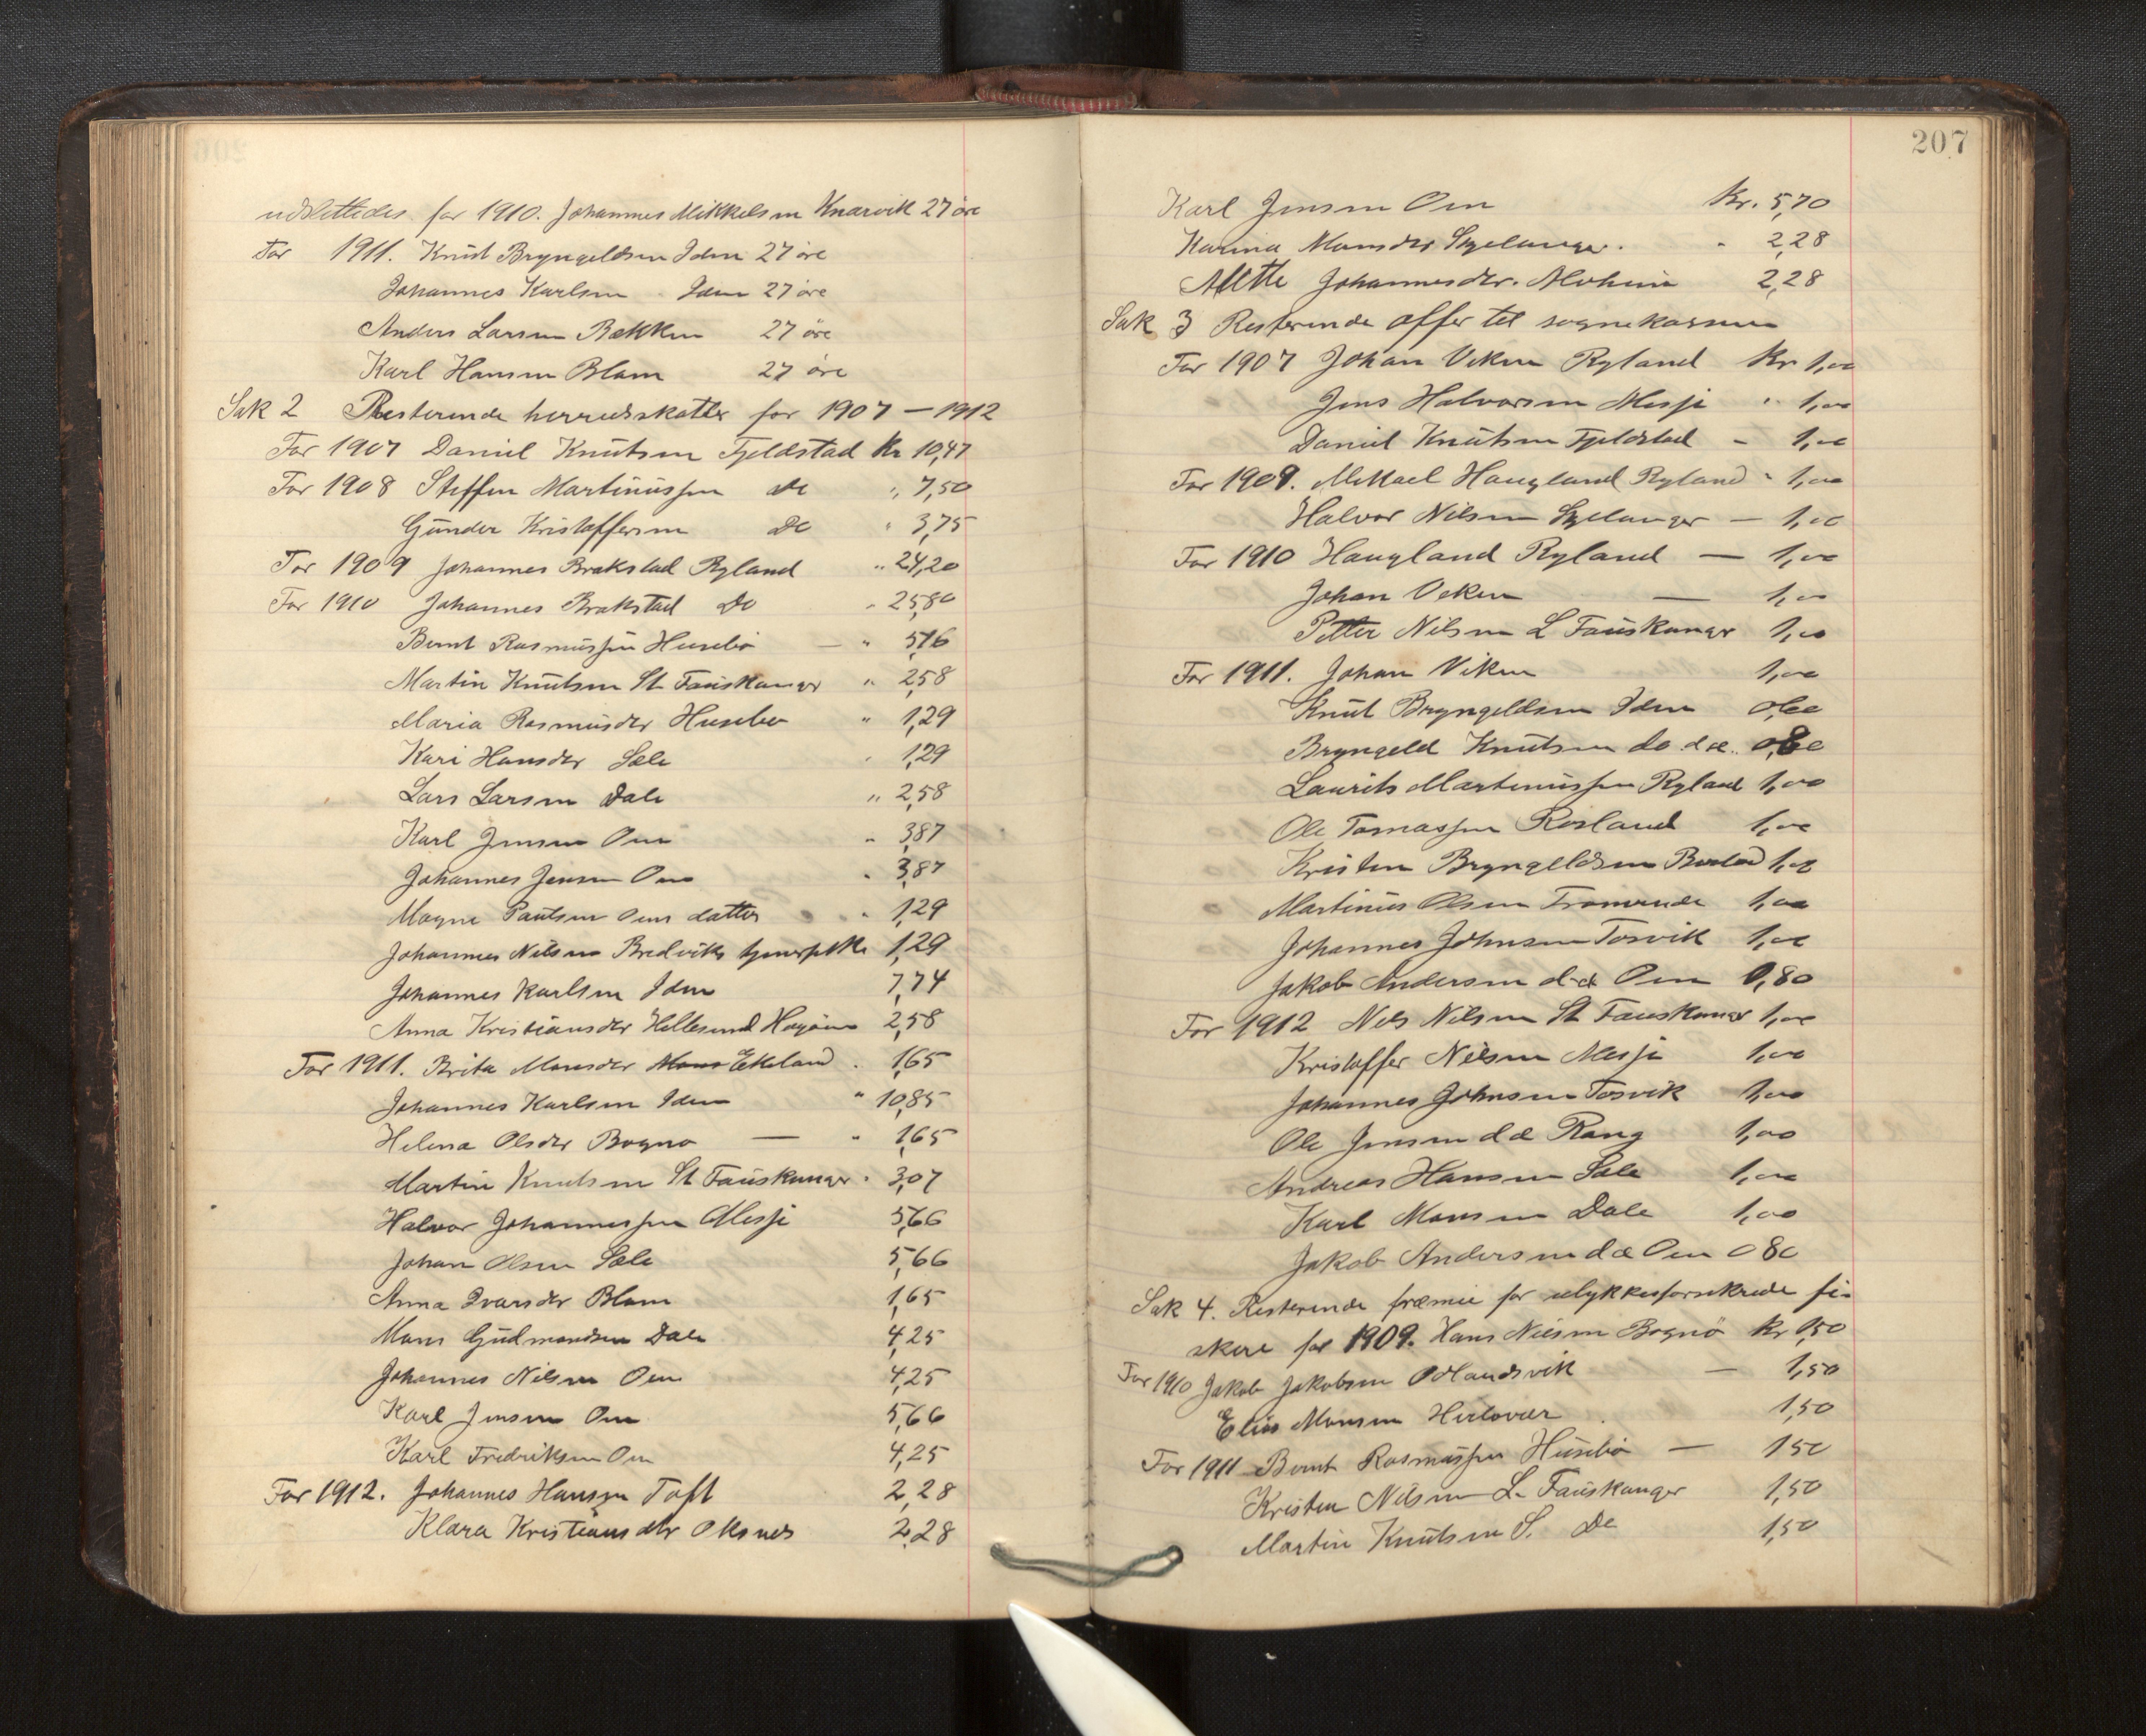 udslettedes for 1910. Johannes Mikkelsen Knarvik 27 øre
For 1911. Knut Bryngeldsen Iden 27 øre
Johannes Karlsen Iden 27 øre
Anders Larsen Bakken 27 øre
Karl Hansen Blom 27 øre
Sak 2 Resterende herredsskatter for 1907 – 1912
For 1907 Daniel Knutsen Fjeldstad Kr 10,47
For 1908 Steffen Martinussen do " 7,50
Gunder Kristoffersen Do " 3,75
For 1909 Johannes Brakstad Ryland " 24,20
For 1910 Johannes Brakstad Do " 25,80
Bernt Rasmussen Husebø — " 5,16
Martin Knutsen St Fauskanger " 2,58
Maria Rasmusdtr Husebø " 1,29
Kari Hansdtr Sæle " 1,29
Lars Larsen Dale " 2,58
Karl Jensen Oen " 3,87
Johannes Jensen Oen " 3,87
Magne Paulsen Oens datter " 1,29
Johannes Nilsen Bredviks 1,29
Johannes Karlsen Iden 7,74
Anna Kristiansdtr Hellesund 2,58
For 1911. Brita Monsdtr Ekeland . 1,65
Johannes Karlsen Iden " 10,85
Helena Olsdtr Bognø — " 1,65
Martin Knutsen St Fauskanger " 3,07
Halvor Johannessen Mesje 5,66
Johan Olsen Sæle 5,66
Anna Ivarsdtr Blom 1,65
Mons Gudmundsen Dale 4,25
Johannes Nilsen Oen 4,25
Karl Jensen Oen 5,66
Karl Fredriksen Oen 4,25
For 1912. Johannes Hansen Toft 2,28
Klara Kristiansdtr Oksnes 2,28
207
Karl Jensen Oen Kr. 5,70
Karina Monsdtr Skjelanger. " 2,28
Mette Johannesdtr. 2,28
Sak 3 Resterende offer til sognekassen
For 1907 Johan Viken Ryland Kr 1,00
Jens Halvorsen Mesje " 1,00
Daniel Knutsen Fjeldstad – 1,00
For 1909. Mikael Haugland Ryland " 1,00
Halvor Nilsen Skjelanger — 1,00
For 1910 Haugland Ryland — 1,00
Johan Viken — 1,00
Petter Nilsen L Fauskanger 1,00
For 1911. Johan Viken 1,00
Knut Bryngeldsen Iden
Bryngeld Knutsen do d.æ. 0,80
Laurits Martinussen Ryland 1,00
Ole Tomassen Rosland 1,00
Kristen Bryngeldsen 1,00
Martinus Olsen 1,00
Johannes Johnsen Tosvik 1,00
Jakob Andersen d.æ Oen 0,80
For 1912 Nels Nilsen St Fauskanger 1,00
Kristoffer Nilsen Mesje 1,00
Johannes Johnsen Tosvik 1,00
Ole Jensen d æ Rong 1,00
Andreas Hansen Sæle 1,00
Karl Monsen Dale 1,00
Jakob Andersen d æ Oen 0 80
Sak 4. Resterende præmie for ulykkesforsikrede fi-
skere for 1909. Hans Nilsen Bognø Kr 0,50
For 1910 Jakob Jakobsen Odlandsvik — 1,50
Elias Monsen Herlovær 1,50
For 1911 Bernt Rasmussen Husebø — 1 50
Kristen Nilsen L. Fauskanger 1,50
Martin Knutsen S. Do 1,50